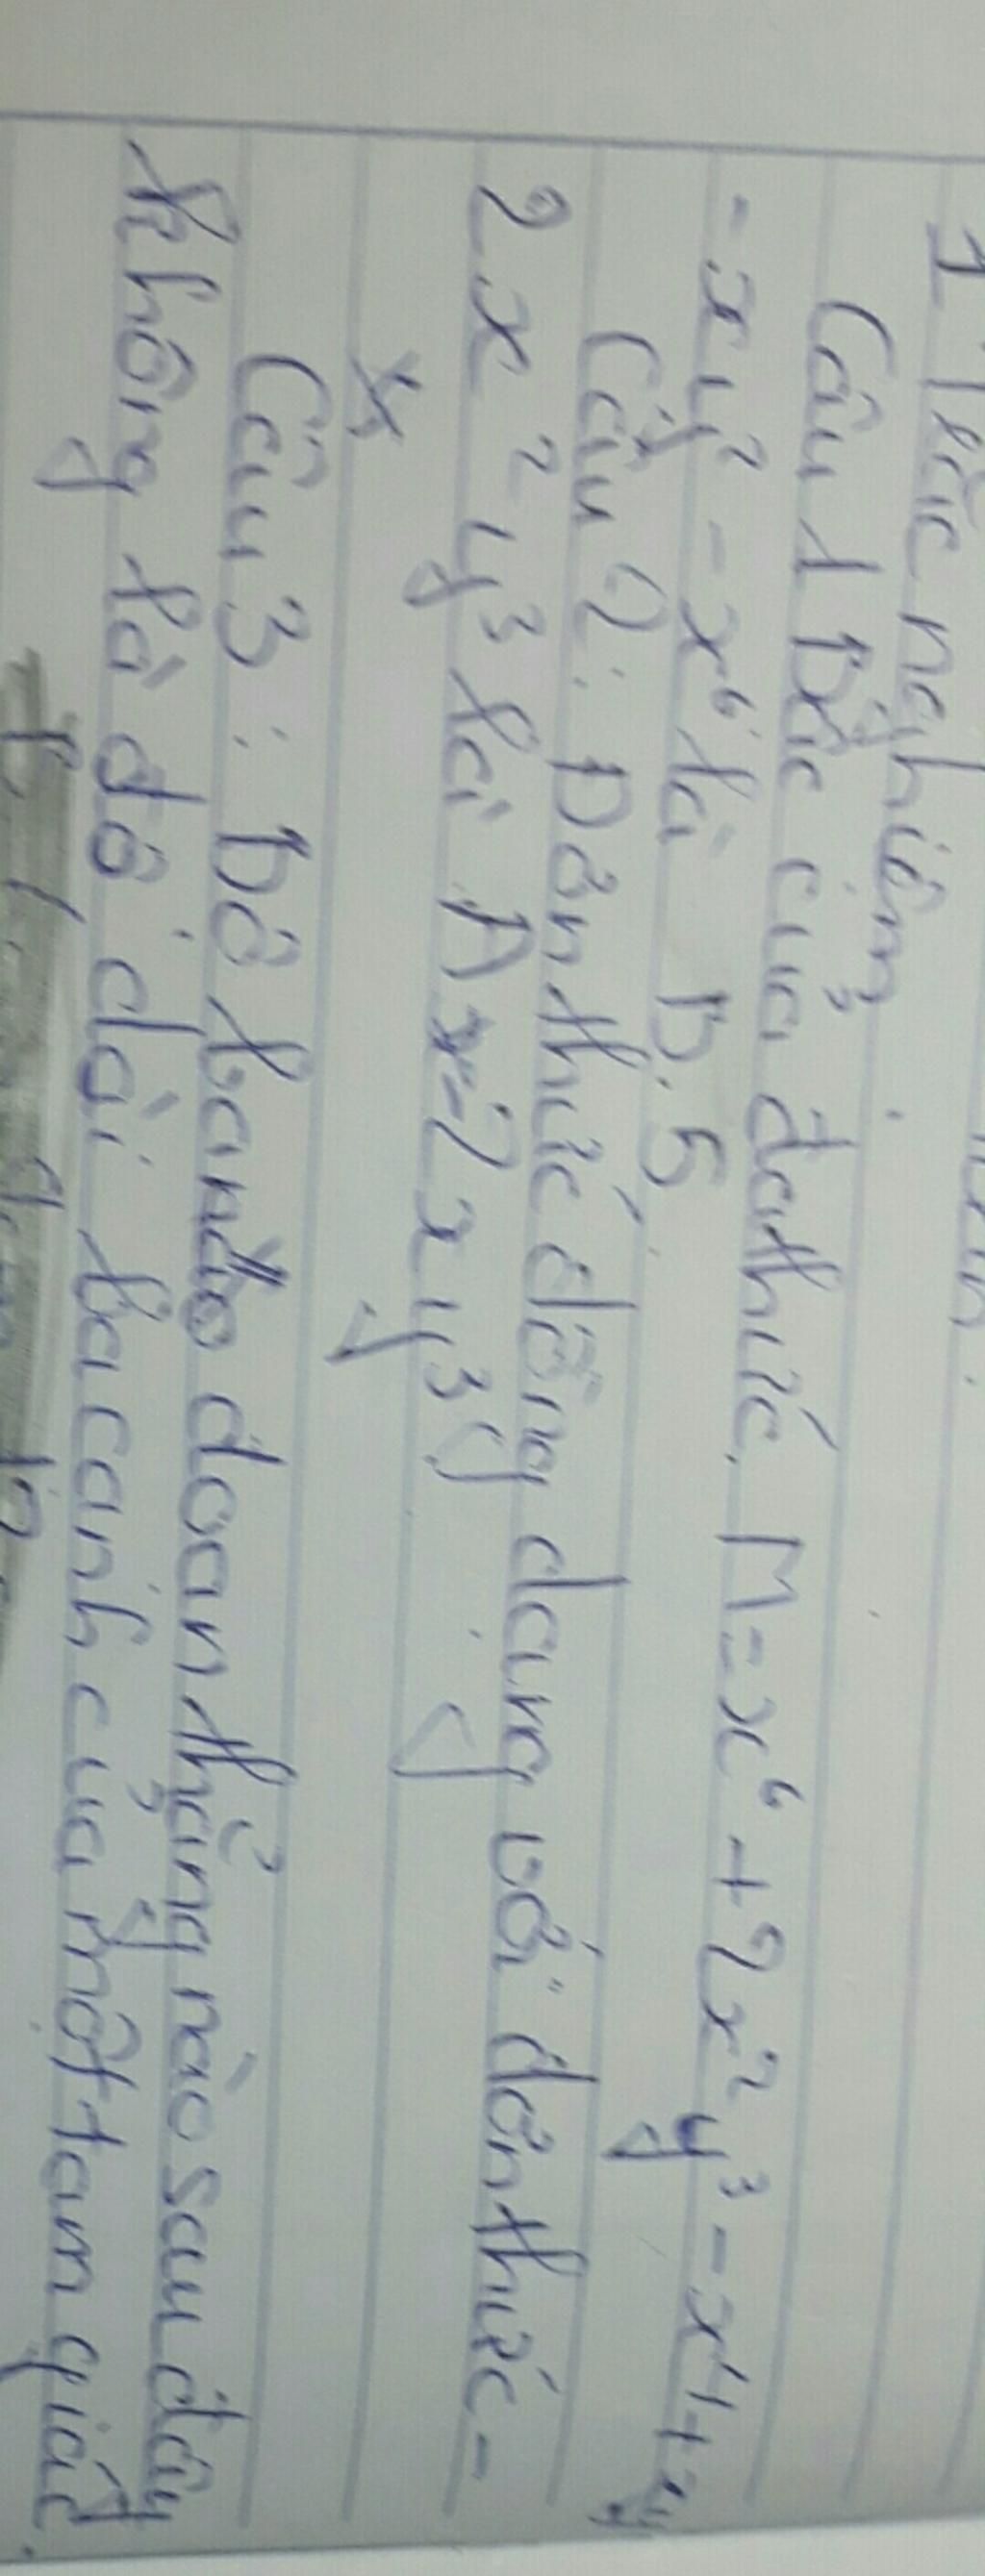 1 Trắc nghiệm
Câu 1 Bậc của đa thức. M = x⁶ + 2x²y³ - x⁴ + xy
- xy² - x⁶ là D. 5
Câu 2: Đơn thức đồng dạng với đơn thức -
2x²y³ là A x²2xy³y
Câu 3: Bộ ba nào đoạn thẳng nào sau đây
không là độ dài ba cạnh của một tam giác.